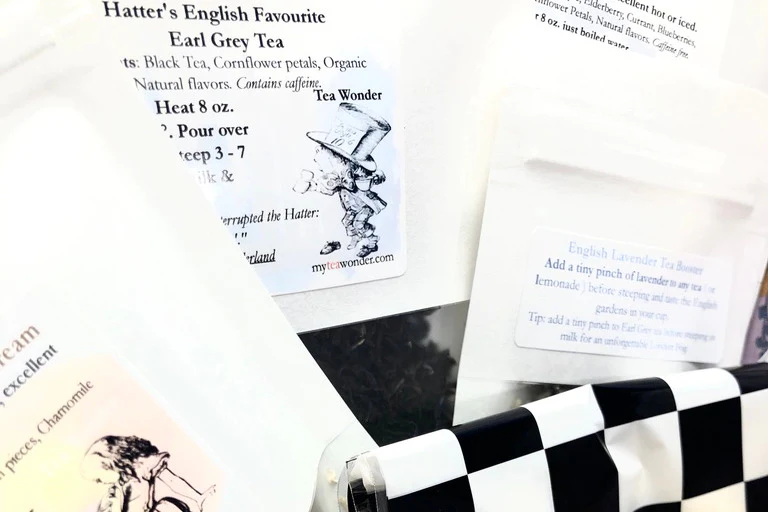 Hatter's English Favourite
Earl Grey Tea
ts: Black Tea, Cornflower petals, Organic
Natural flavors. Contains caffeine.
Tea Wonder
Heat 8 oz.
?. Pour over
teep 3 - 7
ilk &
terrupted the Hatter:
!."
derland
myteawonder.com
cellent hot or iced.
Elderberry, Currant, Blueberries,
flower Petals, Natural flavors. Caffeine free.
r 8 oz. just boiled water
English Lavender Tea Booster
Add a tiny pinch of lavender to any tea ( or
lemonade ) before steeping and taste the English
gardens in your cup.
Tip: add a tiny pinch to Earl Grey tea before steeping in
milk for an unforgettable London Fog
ream
, excellent
n pieces, Chamomile